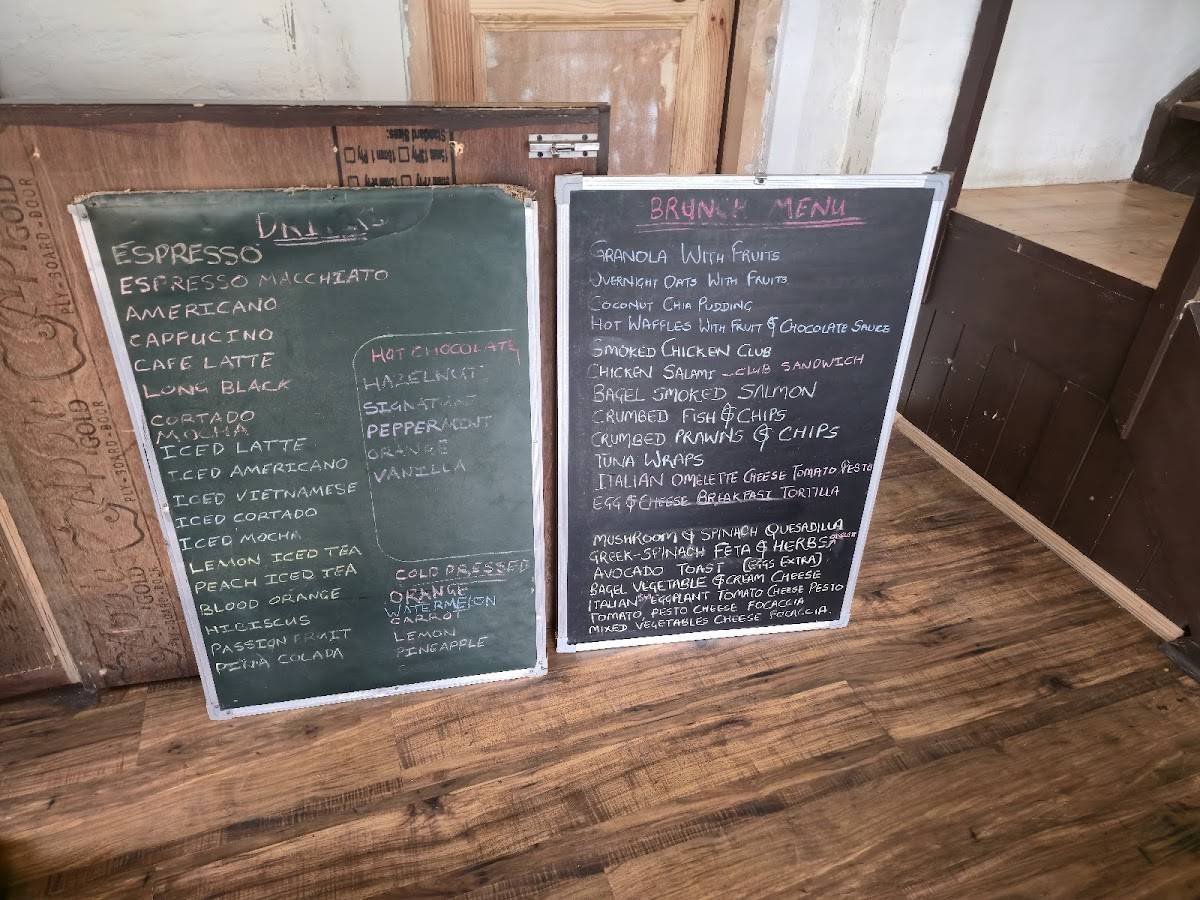 DRINKS
ESPRESSO
ESPRESSO MACCHIATO
AMERICANO
CAPPUCINO
CAFE LATTE
LONG BLACK
CORTADO
MOCHA
ICED LATTE
ICED AMERICANO
ICED VIETNAMESE
ICED CORTADO
ICED MOCHA
LEMON ICED TEA
PEACH ICED TEA
BLOOD ORANGE
HIBISCUS
PASSION FRUIT
PINA COLADA
HOT CHOCOLATE
HAZELNUT
SIGNATURE
PEPPERMINT
ORANGE
VANILLA
COLD PRESSED
ORANGE
WATERMELON
CARROT
LEMON
PINEAPPLE
BRUNCH MENU
GRANOLA WITH FRUITS
OVERNIGHT OATS WITH FRUITS
COCONUT CHIA PUDDING
HOT WAFFLES WITH FRUIT & CHOCOLATE SAUCE
SMOKED CHICKEN CLUB
CHICKEN SALAMI - CLUB SANDWICH
BAGEL SMOKED SALMON
CRUMBED FISH & CHIPS
CRUMBED PRAWNS & CHIPS
TUNA WRAPS
ITALIAN OMELETTE CHEESE TOMATO PESTO
EGG & CHEESE BREAKFAST TORTILLA
MUSHROOM & SPINACH QUESADILLA
GREEK-SPINACH FETA & HERBS
AVOCADO TOAST (EGGS EXTRA)
BAGEL VEGETABLE & CREAM CHEESE
ITALIAN EGGPLANT TOMATO CHEESE PESTO
TOMATO, PESTO CHEESE FOCACCIA
MIXED VEGETABLES CHEESE FOCACCIA.
Standard Sizes:
GOLD
PLY-BOARD-DOOR
GOLD
PLY-BOARD-DOOR
GOLD